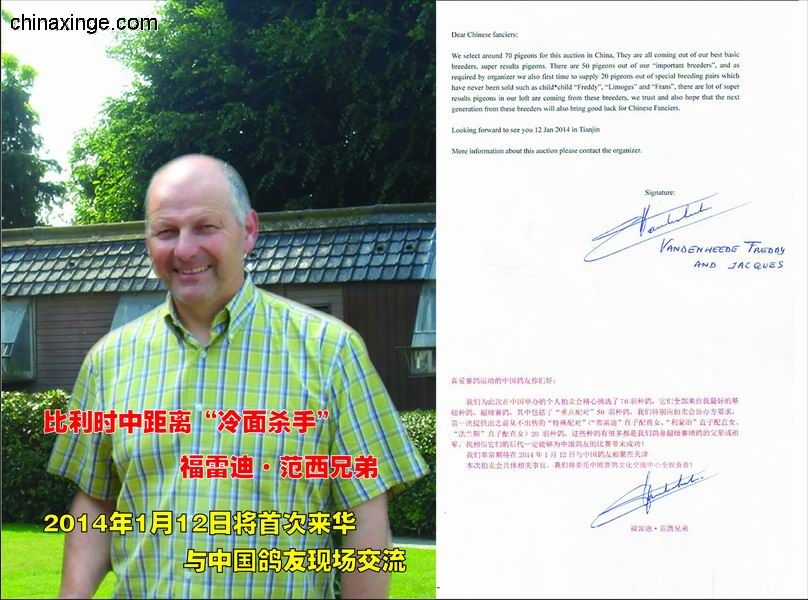 chinaxinge.com
比利时中距离“冷面杀手”
福雷迪·范西兄弟
2014年1月12日将首次来华
与中国鸽友现场交流
Dear Chinese fanciers:
We select around 70 pigeons for this auction in China, They are all coming out of our best basic
breeders, super results pigeons. There are 50 pigeons out of our “important breeders”, and as
required by organizer we also first time to supply 20 pigeons out of special breeding pairs which
have never been sold such as child*child “Freddy”, “Limoges” and “Frans”, there are lot of super
results pigeons in our loft are coming from these breeders, we trust and also hope that the next
generation from these breeders will also bring good luck for Chinese Fanciers.
Looking forward to see you 12 Jan 2014 in Tianjin
More information about this auction please contact the organizer.
Signature:
VANDENHEEDE FREDDY
AND JACQUES
喜爱赛鸽运动的中国鸽友你们好:
我们为此次在中国举办的个人拍卖会精心挑选了 70 羽种鸽,它们全部来自我最好的基
础种鸽、超级赛鸽,其中包括了“重点配对”50 羽种鸽,我们特别应拍卖会协办方要求,
第一次提供出之前从不出售的“特殊配对”(“弗雷迪”直子配直女、“利蒙治”直子配直女、
“法兰斯”直子配直女)20 羽种鸽,这些种鸽有很多都是我们鸽舍超级赛绩鸽的父辈或祖
辈。我相信它们的后代一定能够为中国鸽友的比赛带来成功!
我们非常期待在 2014 年 1 月 12 日与中国鸽友相聚在天津
本次拍卖会具体相关事宜,我们将委托中欧赛鸽文化交流中心全权负责!
福雷迪·范西兄弟